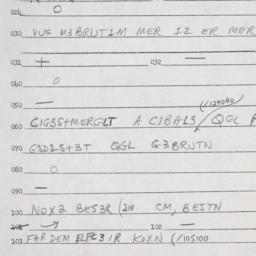 024 O
030 VUS M3BRUT1M MER 12 ER MER
031 + 032 —
040 O
050 —
(/124040)
060 C1G3S+MERGLT A C1BALS QGL
070 G3D1S+3T QGL G3BRUTN
080 O
090 —
100 NOX2 BES3R (210 CM, BESTN
102 —
203 FAR DEM KOXN (/105100